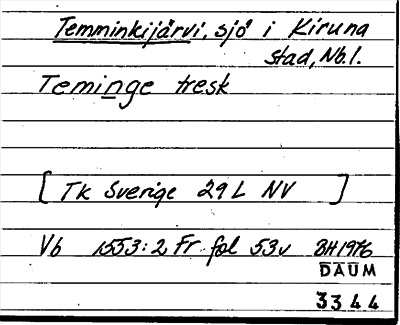 Temminkijärvi, sjö i Kiruna
stad, Nb.l.
Teminge tresk
[ Tk Sverige 29 L NV ]
Vb 1553:2 Fr fol 53v BH 1976
DAUM
3344